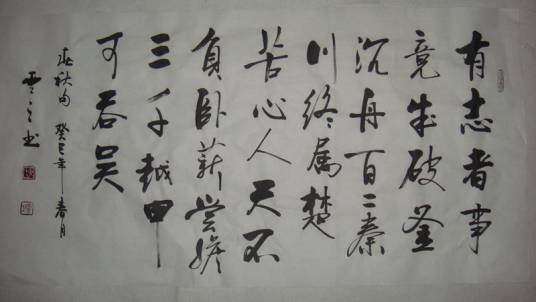 有志者事
竟成破釜
沉舟百二秦
川终属楚
苦心人天不
負卧薪尝膽
三千越甲
可吞吴
春秋句 癸巳年春月